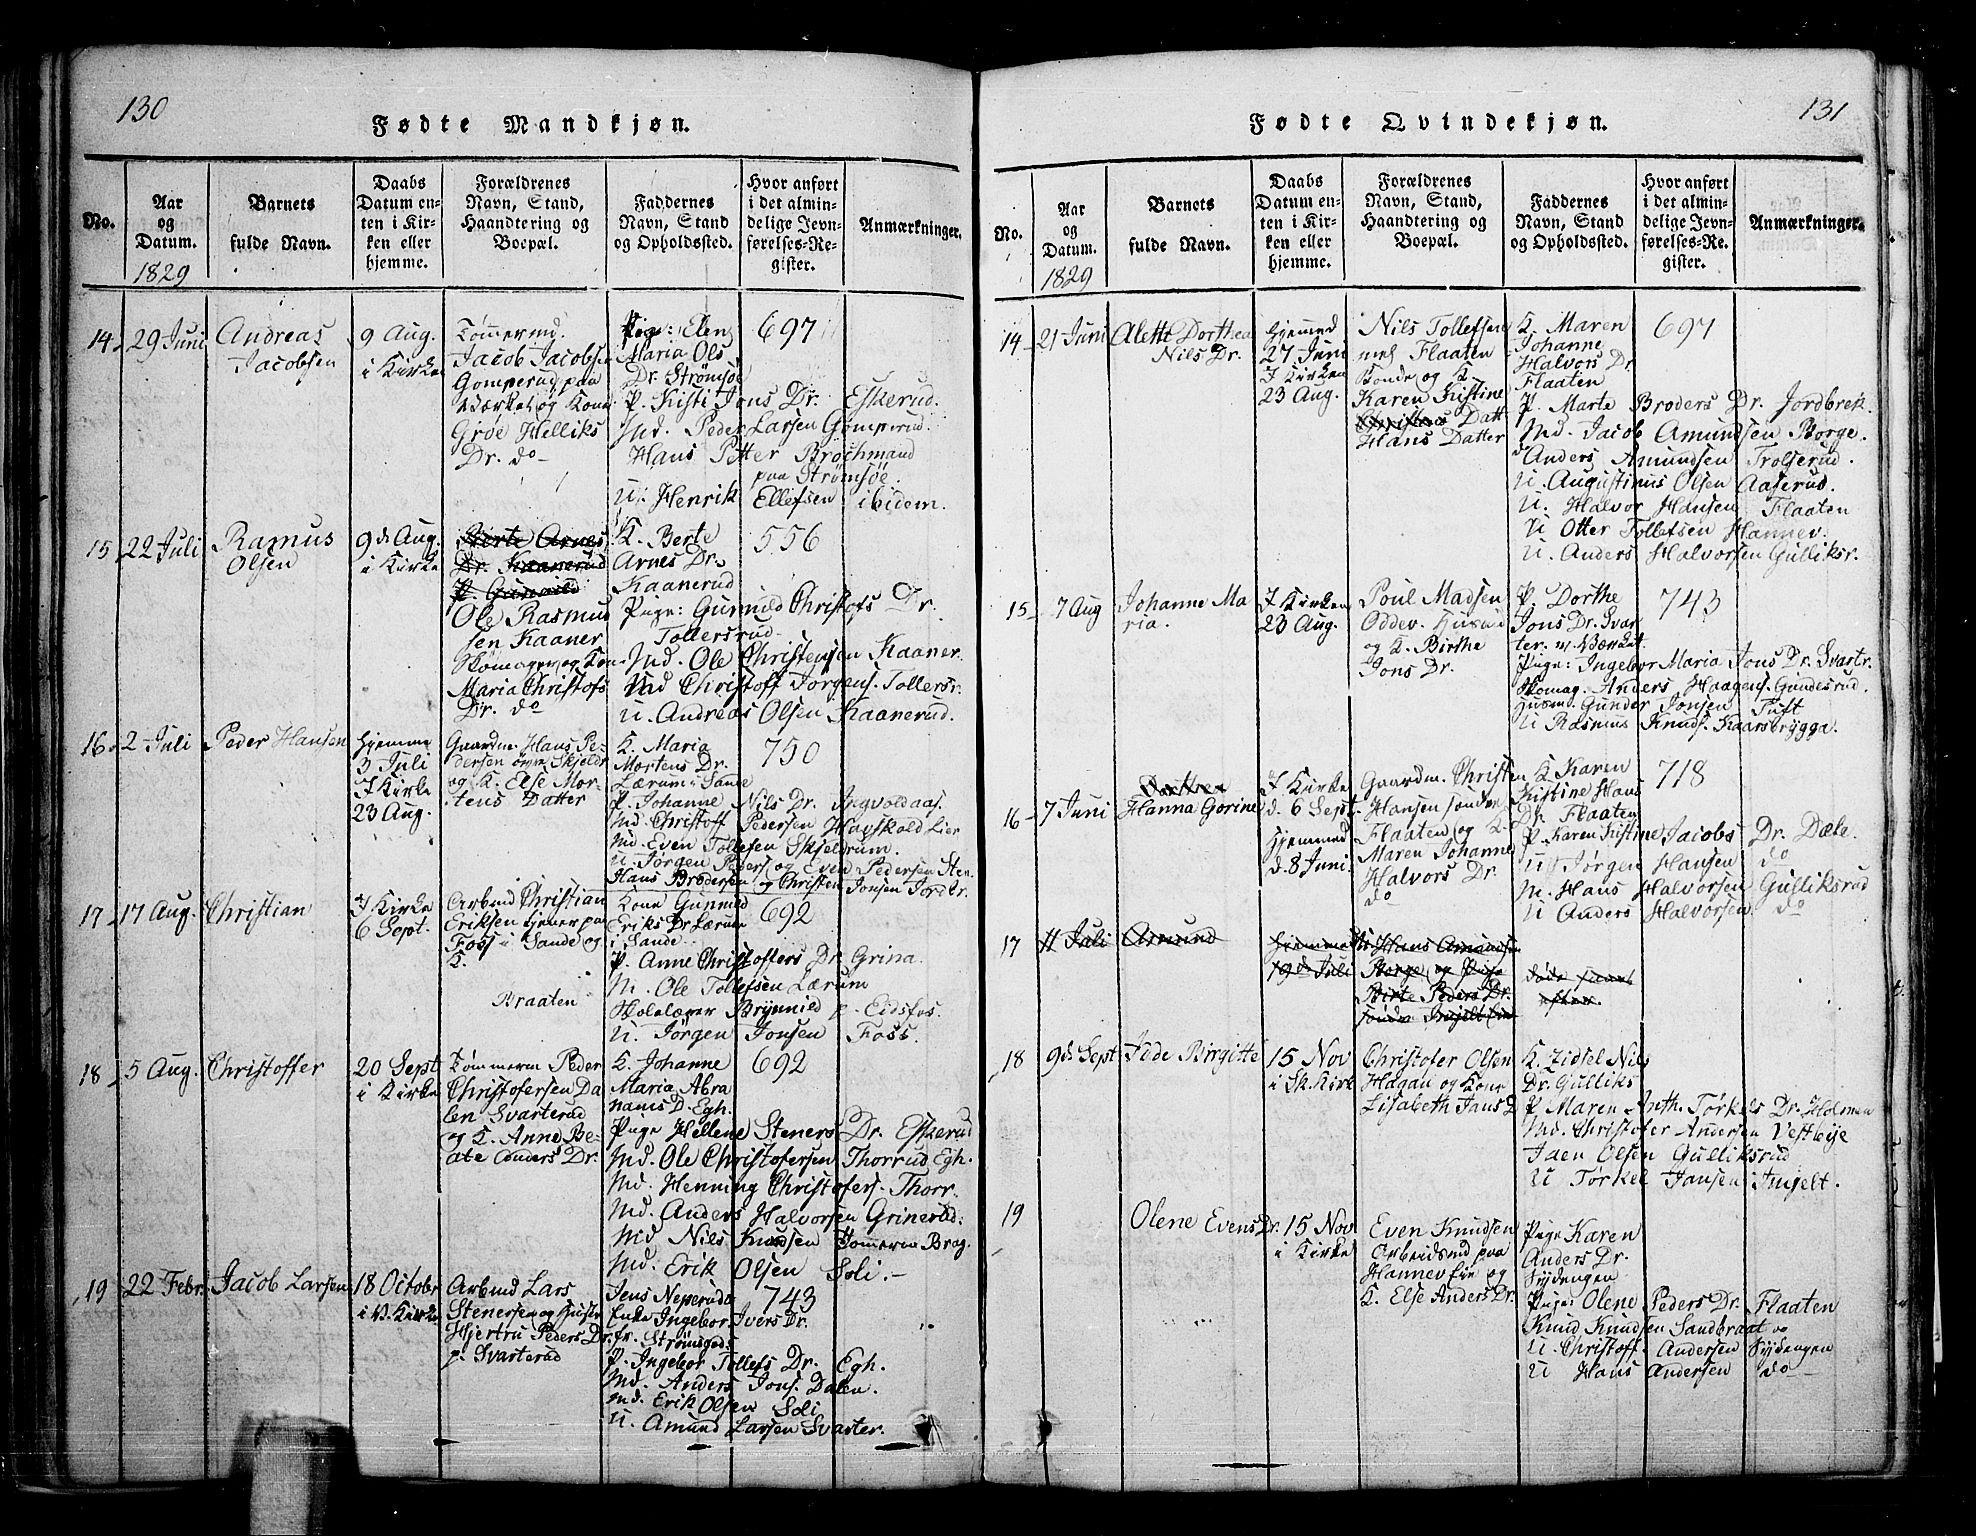 130
Fødte Mandkjøn.
No.
Aar
og
Datum.
1829
Barnets
fulde Navn.
Daabs
Datum en-
ten i Kir-
ken eller
hjemme.
Forældrenes
Navn, Stand,
Haandtering og
Boepæl.
Faddernes
Navn, Stand
og Opholdssted.
Hvor anført
i det almin-
delige Jevn-
førelses-Re-
gister.
Anmærkninger.
14
29 Juni
Andreas
Jacobsen
9 Aug.
i Kirke
Tømmermd.
Jacob Jacobsen
Gomperud paa
Værket og Kone
Groe Helliks
Dr. do
Pige: Elen
Maria Ols
Dr. Strømsøe
P. Kisti Jons Dr. Eskerud.
Md. Peder Larsen Gomperud.
Hans Petter Brochmand
paa Strømsøe.
U. Henrik Ellefsen ibidem.
697
15
22 Juli
Rasmus
Olsen
9de Aug.
i Kirke
Berte Arnes
Dr. Kaanerud
P. Gunnild
Ole Rasmus
sen Kaaner
Skomager og Kone
Maria Christofs
Dr. do
K. Berte
Arnes Dr.
Kaanerud
Pige: Gunnild Christofs Dr.
Tollersrud
Md. Ole Christensen Kaaner.
Md Christoff Jørgens. Tollersr.
U. Andreas Olsen Kaanerud.
556
16
2 Juli
Peder Hansen
hjemme
3 Juli
I Kirke
23 Aug.
Gaardm. Hans Pe-
dersen øvre Skjeldr
og K. Else Mor-
tens Datter
K. Maria
Mortens Dr.
Lærum i Sande
P. Johanne Nils Dr. Ingvoldaas.
Md. Christoff Pedersen Havskold Lier
Md. Even Tollefsen Skjeldrum.
U. Jørgen Peders og Even Pedersen Sten
Hans Brodersen og Christen Jonsen Jordbr.
750
17
17 Aug.
Christian
I Kirke
6 Sept.
Arbmd Christian
Eriksen tjener paa
Foss i Sande og
K.
Braaten
Kone Gunnild
Eriks Dr Lærum
i Sande
P. Anne Christoffers Dr Grina.
M. Ole Tollefsen Lærum
Skolelærer Brynnild p. Eidsfos.
U. Jørgen Jonsen Foss.
692
18
5 Aug.
Christoffer
20 Sept
i Kirke
Tømmerm Peder
Christofersen Da
len Svarterud
og K. Anne Be-
ate Anders Dr.
K. Johanne
Maria Abra
hams D. Egh.
Pige Hellene Steners Dr. Eskerud
Md. Ole Christofersen Thorrud Egh.
Md. Henning Christofers. Thorr.
Md. Anders Halvorsen Grinerud.
Md Nils Knudsen Tømmerm Brag.
Md. Erik Olsen Soli.
692
19
22 Febr.
Jacob Larsen
18 October
i V. Kirke
Arbmd Lars
Stenersen og Hustr
Hjertru Peders Dr.
p. Svarterud
Jens Neperuds
Enke Ingebor Ivers Dr.
fr. Strømsgods
P. Ingebor Tollefs Dr. Egh.
Md. Anders Jons. Dalen.
Md. Erik Olsen Soli
U. Amund Larsen Svarter.
743
131
Fødte Qvindekjøn.
No.
Aar
og
Datum.
1829
Barnets
fulde Navn.
Daabs
Datum en-
ten i Kir-
ken eller
hjemme.
Forældrenes
Navn, Stand,
Haandtering og
Boepæl.
Faddernes
Navn, Stand
og Opholdssted.
Hvor anført
i det almin-
delige Jevn-
førelses-Re-
gister.
Anmærkninger.
14
21 Juni
Alette Dorthea
Nils Dr.
Hjemmed
27 Juni
I Kirken
23 Aug.
Nils Tollefsen
mel Flaaten
Bonde og K.
Karen Kistine
Christens Datt
Hans Datter
K. Maren
Johanne
Halvors Dr.
Flaaten
P. Marte Broders Dr. Jordbrek.
Md. Jacob Amundsen Borge.
Anders Amundsen Trolserud.
U. Augustinus Olsen Aaserud.
U. Halvor Hansen Flaaten
U Otter Tollefsen Hannev.
U. Anders Halvorsen Gulliksr.
697
15
7 Aug
Johanne Ma
ria.
I Kirken
23 Aug.
Poul Madsen
Oddev. Husm
og K. Birthe
Jons Dr.
P. Dorthe
Jons Dr. Svar
ter. v. Værket
Pige: Ingebor Maria Jons Dr. Svartr.
Skomag. Anders Haagens. Gundesrud.
Husm. Gunder Jonsen Tuft
U Rasmus Knuds. Kaarsbrygga.
743
16
7 Juni
Dorthea
Hanna Gorine
I Kirke
d. 6 Sept.
Hjemmed
d. 8 Juni
Gaardm. Christen
Hansen søndre
Flaaten og K.
Maren Johanne
Halvors Dr.
do
K Karen
Kistine Hans
Dr. Flaaten
P. Karen Kistine Jacobs Dr. Dæle.
U Jørgen Hansen do
M. Hans Halvorsen Gulliksrud
U Anders Halvorsen do
718
17
11 Juli
Amund
Hjemmed
19de Juli
Hans Amundsen
Borge og Pige
Birte Peders Dr.
søndre Ingelt Eie
døde samt
efter.
18
9de Sept
Fede Birgitte
15 Nov
i Sk. Kirk
Christofer Olsen
Hagan og Kone
Lisabeth Jans D
K. Zidsel Nils
Dr. Gulliks
P Maren Anth. Torkels Dr. Holmen
Md. Christofer Andersen Vestbye
Jaen Olsen Gulliksrud
U Torkel Jansen Ingelt.
19
Olene Evens Dr.
15 Nov
i Kirke
Even Knudsen
Arbeidsmd paa
Hannev Eie og
K. Else Anders Dr.
Pige Karen
Anders Dr.
Sydengen
Pige: Olene Peders Dr. Flaaten
Knud Knudsen Sandbraat
U. Christoff. Andersen Sydengen
U Hans Andersen do